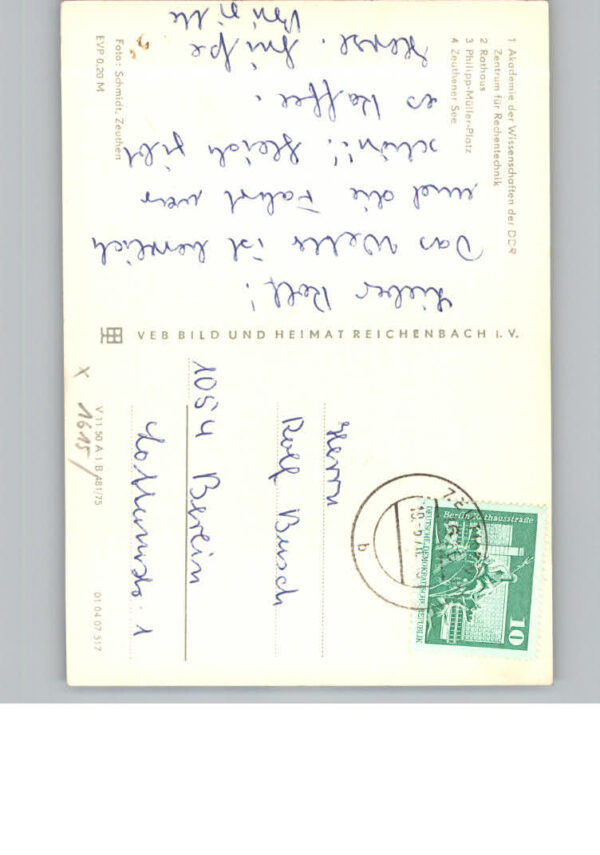 1 Akademie der Wissenschaften der DDR
Zentrum für Rechentechnik
2 Rathaus
3 Philipp-Müller-Platz
4 Zeuthener See
Lieber Rolf!
Das Wetter ist herrlich
und die Fahrt war
schön! Gleich gibt
es Kaffee.
Grüße
Foto: Schmidt, Zeuthen
EVP 0,20 M
VEB BILD UND HEIMAT REICHENBACH i. V.
Berlin, Rathausstraße
DEUTSCHE DEMOKRATISCHE REPUBLIK
10
b
Herrn
Rolf Busch
1054 Berlin
Lottumstr. 1
V 11 50 A 1 B 481/75
01 04 07 317
x 1615/